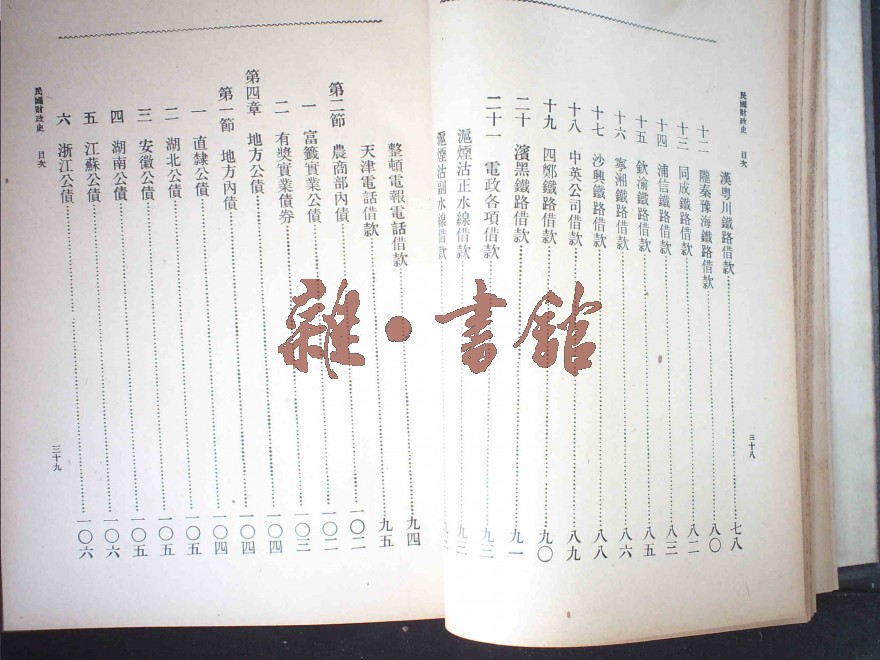 民國財政史 目次
三十八
漢粵川鐵路借款 七八
十二 隴秦豫海鐵路借款 八〇
十三 同成鐵路借款 八二
十四 浦信鐵路借款 八三
十五 欽渝鐵路借款 八五
十六 寧湘鐵路借款 八六
十七 沙興鐵路借款 八八
十八 中英公司借款 八九
十九 四鄭鐵路借款 九〇
二十 濱黑鐵路借款 九一
二十一 電政各項借款 九三
滬煙沽正水線借款 九三
滬煙沽副水線借款
整頓電報電話借款 九四
天津電話借款 九五
第二節 農商部內債 一〇二
一 富籤實業公債 一〇二
二 有獎實業債券 一〇三
第四章 地方公債 一〇四
第一節 地方內債 一〇四
一 直隸公債 一〇四
二 湖北公債 一〇五
三 安徽公債 一〇五
四 湖南公債 一〇五
五 江蘇公債 一〇六
六 浙江公債 一〇六
民國財政史 目次
三十九
雜·書館